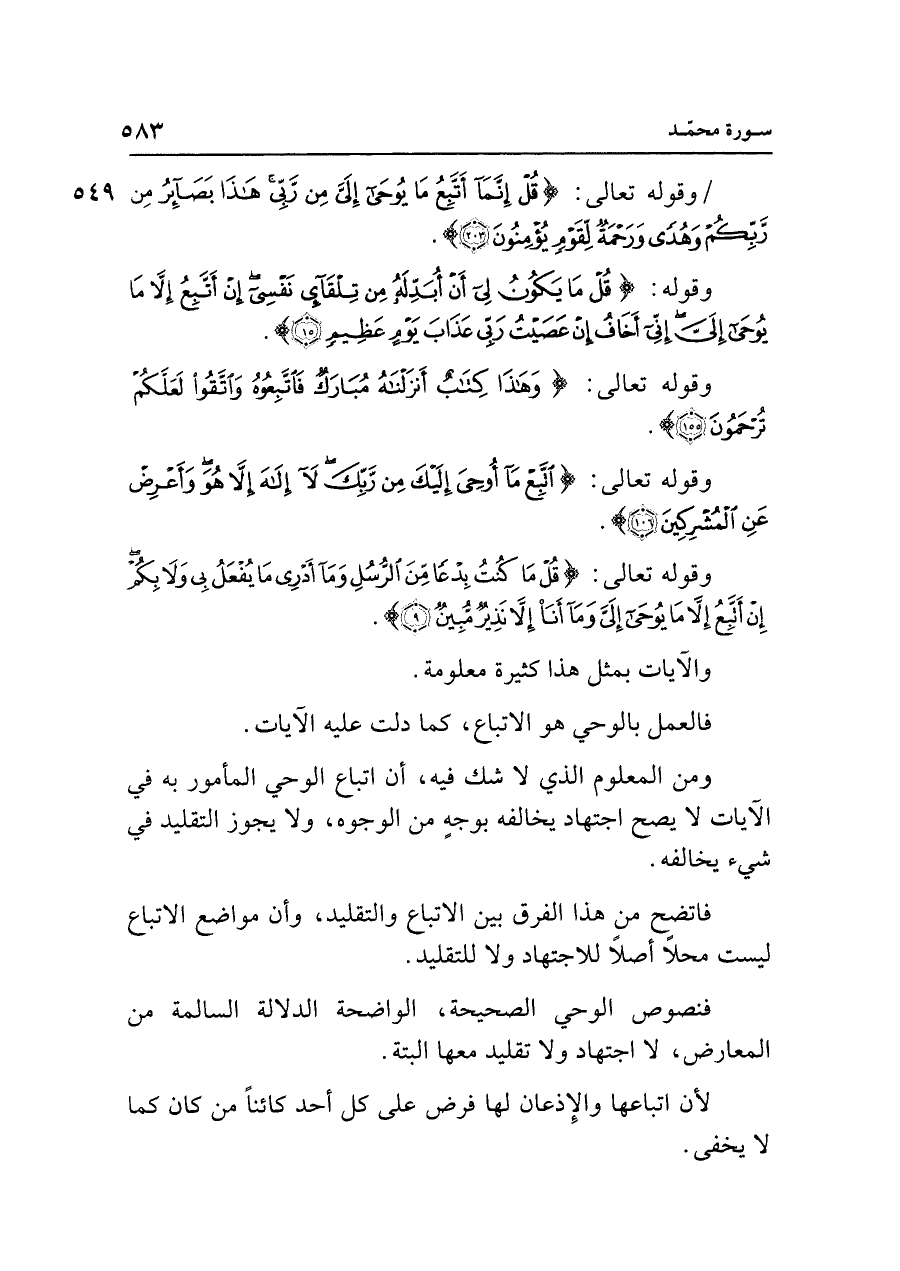 سورة محمّد ٥٨٣
/ وقوله تعالى: ﴿ قُلْ إِنَّمَآ أَتَّبِعُ مَا يُوحَىٰٓ إِلَىَّ مِن رَّبِّىۚ هَـٰذَا بَصَآئِرُ مِن ٥٤٩
رَّبِّكُمْ وَهُدًى وَرَحْمَةٌ لِّقَوْمٍ يُؤْمِنُونَ ٢٠٣ ﴾.
وقوله: ﴿ قُلْ مَا يَكُونُ لِىٓ أَنْ أُبَدِّلَهُۥ مِن تِلْقَآئِ نَفْسِىٓۖ إِنْ أَتَّبِعُ إِلَّا مَا
يُوحَىٰٓ إِلَىَّۖ إِنِّىٓ أَخَافُ إِنْ عَصَيْتُ رَبِّى عَذَابَ يَوْمٍ عَظِيمٍ ١٥ ﴾.
وقوله تعالى: ﴿ وَهَـٰذَا كِتَـٰبٌ أَنزَلْنَـٰهُ مُبَارَكٌ فَٱتَّبِعُوهُ وَٱتَّقُوا۟ لَعَلَّكُمْ
تُرْحَمُونَ ١٥٥ ﴾.
وقوله تعالى: ﴿ ٱتَّبِعْ مَآ أُوحِىَ إِلَيْكَ مِن رَّبِّكَۖ لَآ إِلَـٰهَ إِلَّا هُوَۖ وَأَعْرِضْ
عَنِ ٱلْمُشْرِكِينَ ١٠٦ ﴾.
وقوله تعالى: ﴿ قُلْ مَا كُنتُ بِدْعًا مِّنَ ٱلرُّسُلِ وَمَآ أَدْرِى مَا يُفْعَلُ بِى وَلَا بِكُمْۖ
إِنْ أَتَّبِعُ إِلَّا مَا يُوحَىٰٓ إِلَىَّ وَمَآ أَنَا۠ إِلَّا نَذِيرٌ مُّبِينٌ ٩ ﴾.
والآيات بمثل هذا كثيرة معلومة.
فالعمل بالوحي هو الاتباع، كما دلت عليه الآيات.
ومن المعلوم الذي لا شك فيه، أن اتباع الوحي المأمور به في
الآيات لا يصح اجتهاد يخالفه بوجهٍ من الوجوه، ولا يجوز التقليد في
شيء يخالفه.
فاتضح من هذا الفرق بين الاتباع والتقليد، وأن مواضع الاتباع
ليست محلاً أصلاً للاجتهاد ولا للتقليد.
فنصوص الوحي الصحيحة، الواضحة الدلالة السالمة من
المعارض، لا اجتهاد ولا تقليد معها البتة.
لأن اتباعها والإِذعان لها فرض على كل أحد كائناً من كان كما
لا يخفى.